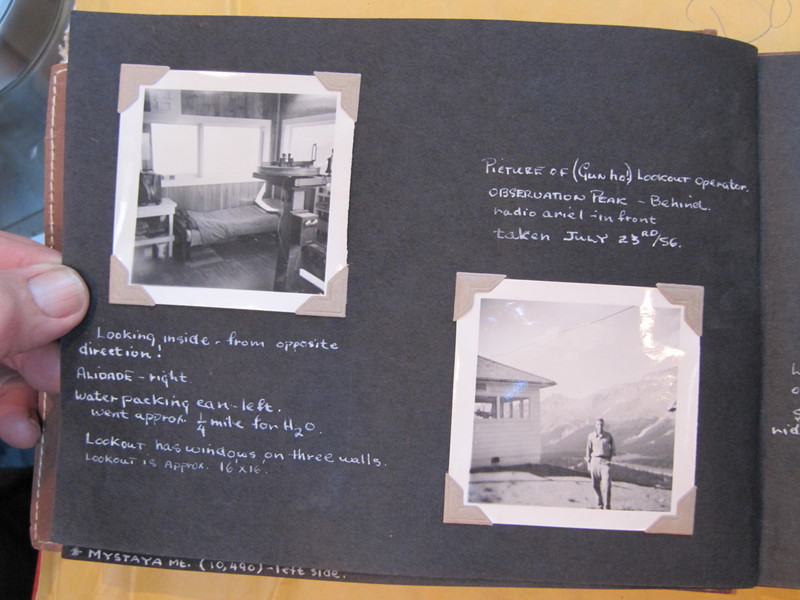 Looking inside - from opposite
direction!
ALIDADE - right.
Water packing can - left.
went approx. 1/4 mile for H2O.
Lookout has windows on three walls.
Lookout is Approx. 16'x16'.
* MYSTAYA Mt. (10,490) - left side.
PICTURE OF (Gunho!) Lookout operator.
OBSERVATION PEAK - Behind.
radio ariel - in front
taken JULY 23RD/56.